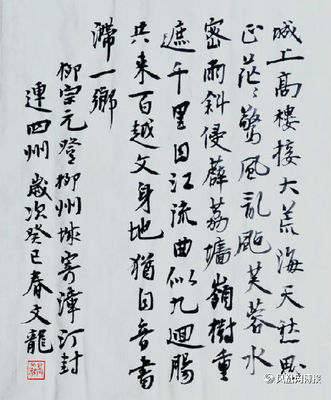 城上高樓接大荒海天愁思
正茫〻驚風亂颭芙蓉水
密雨斜侵薜荔墻嶺樹重
遮千里目江流曲似九迴腸
共来百越文身地猶自音書
滯一鄉
柳宗元登柳州城寄漳汀封
連四州 歲次癸巳春文龍
凤凰网博报